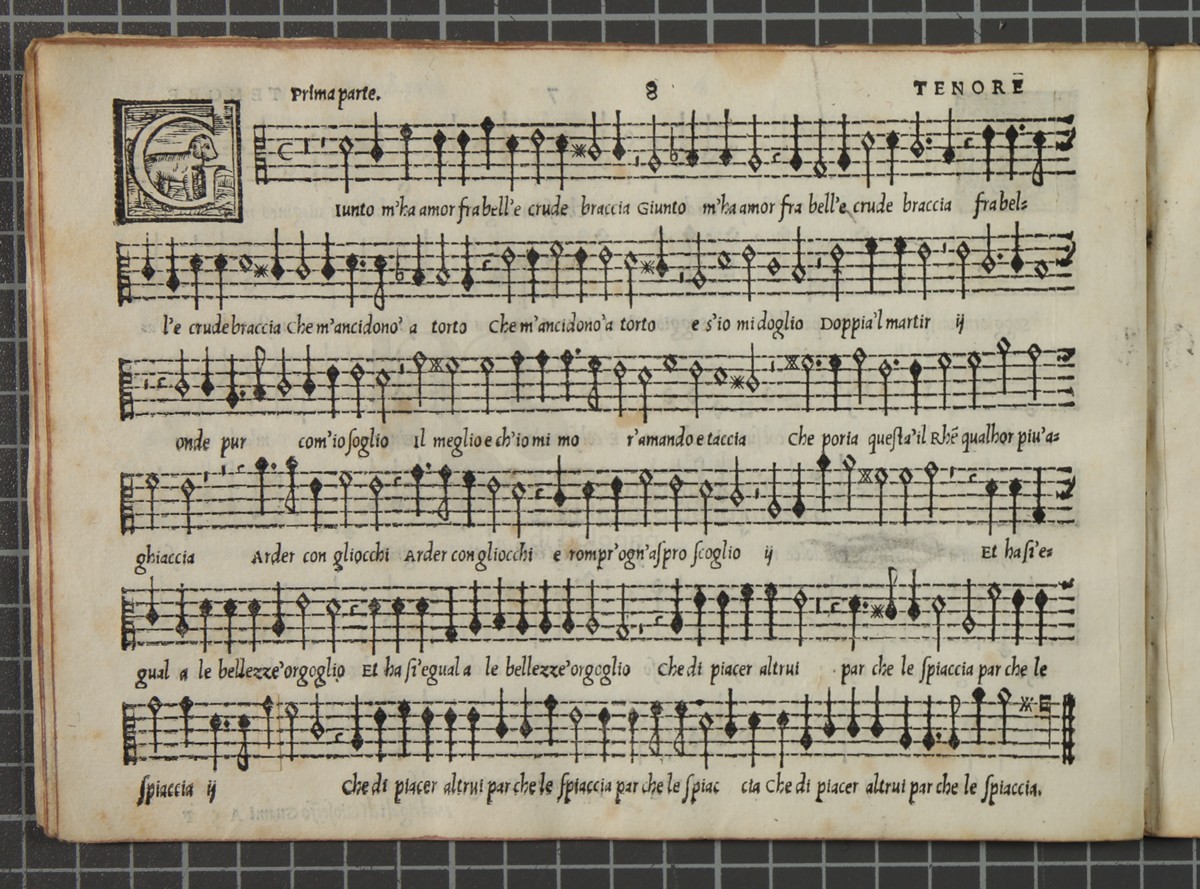 Prima parte. 8 TENORE
GIunto m'ha amor fra bell'e crude braccia Giunto m'ha amor fra bell'e crude braccia fra bel=
l'e crude braccia Che m'ancidono'a torto Che m'ancidono'a torto e s'io mi doglio Doppia'l martir ij
onde pur com'io soglio Il meglio e ch'io mi mo r'amando e taccia Che poria questa'il Rhē qualhor piu'a=
ghiaccia Arder con gliocchi Arder con gliocchi e rompr'ogn'aſpro ſcoglio ij Et ha ſi'e=
gual a le bellezze'orgoglio Et ha ſi'egual a le bellezze'orgoglio Che di piacer altrui par che le ſpiaccia par che le
ſpiaccia ij Che di piacer altrui par che le ſpiaccia par che le ſpiac cia Che di piacer altrui par che le ſpiaccia.